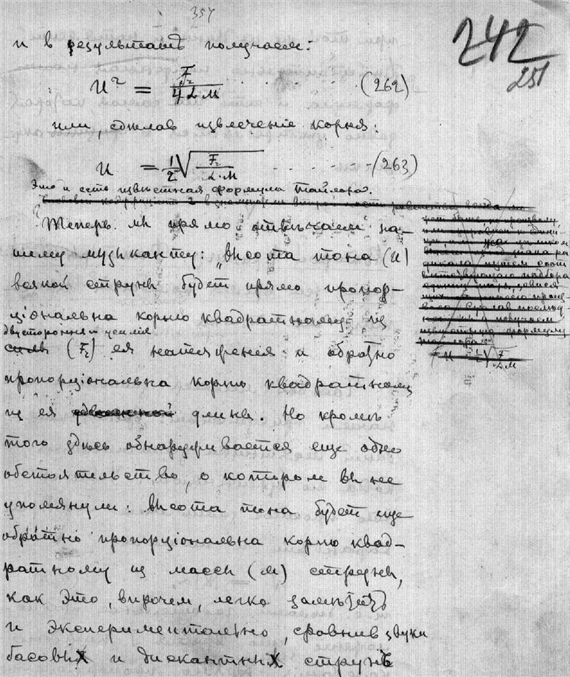 357
242
251
и в результатѣ получаем:
u² = F₂ / 4L.м . . . . . (262)
или, сдѣлав извлеченіе корня:
u = 1/2 √ F₂ / L.м . . . . . (263)
Это и есть извѣстная формула Тайлора.
Теперь мы прямо отвѣчаем на-
шему музыканту: „Высота тона (u)
всякой струны будет прямо пропор-
ціональна корню квадратному из
двусторонняго усилія
(F₂) ея натяженія и обратно
пропорціональна корню квадратному
из ея длины. Но кромѣ
того здѣсь обнаруживается еще одно
обстоятельство, о котором вы не
упомянули: высота тона будет еще
обратно пропорціональна корню квад-
ратному из массы (м) струны,
как это, впрочем, легко замѣ{тит}ь
и экспериментально, сравнив звуки
басовых и дискантных струнъ